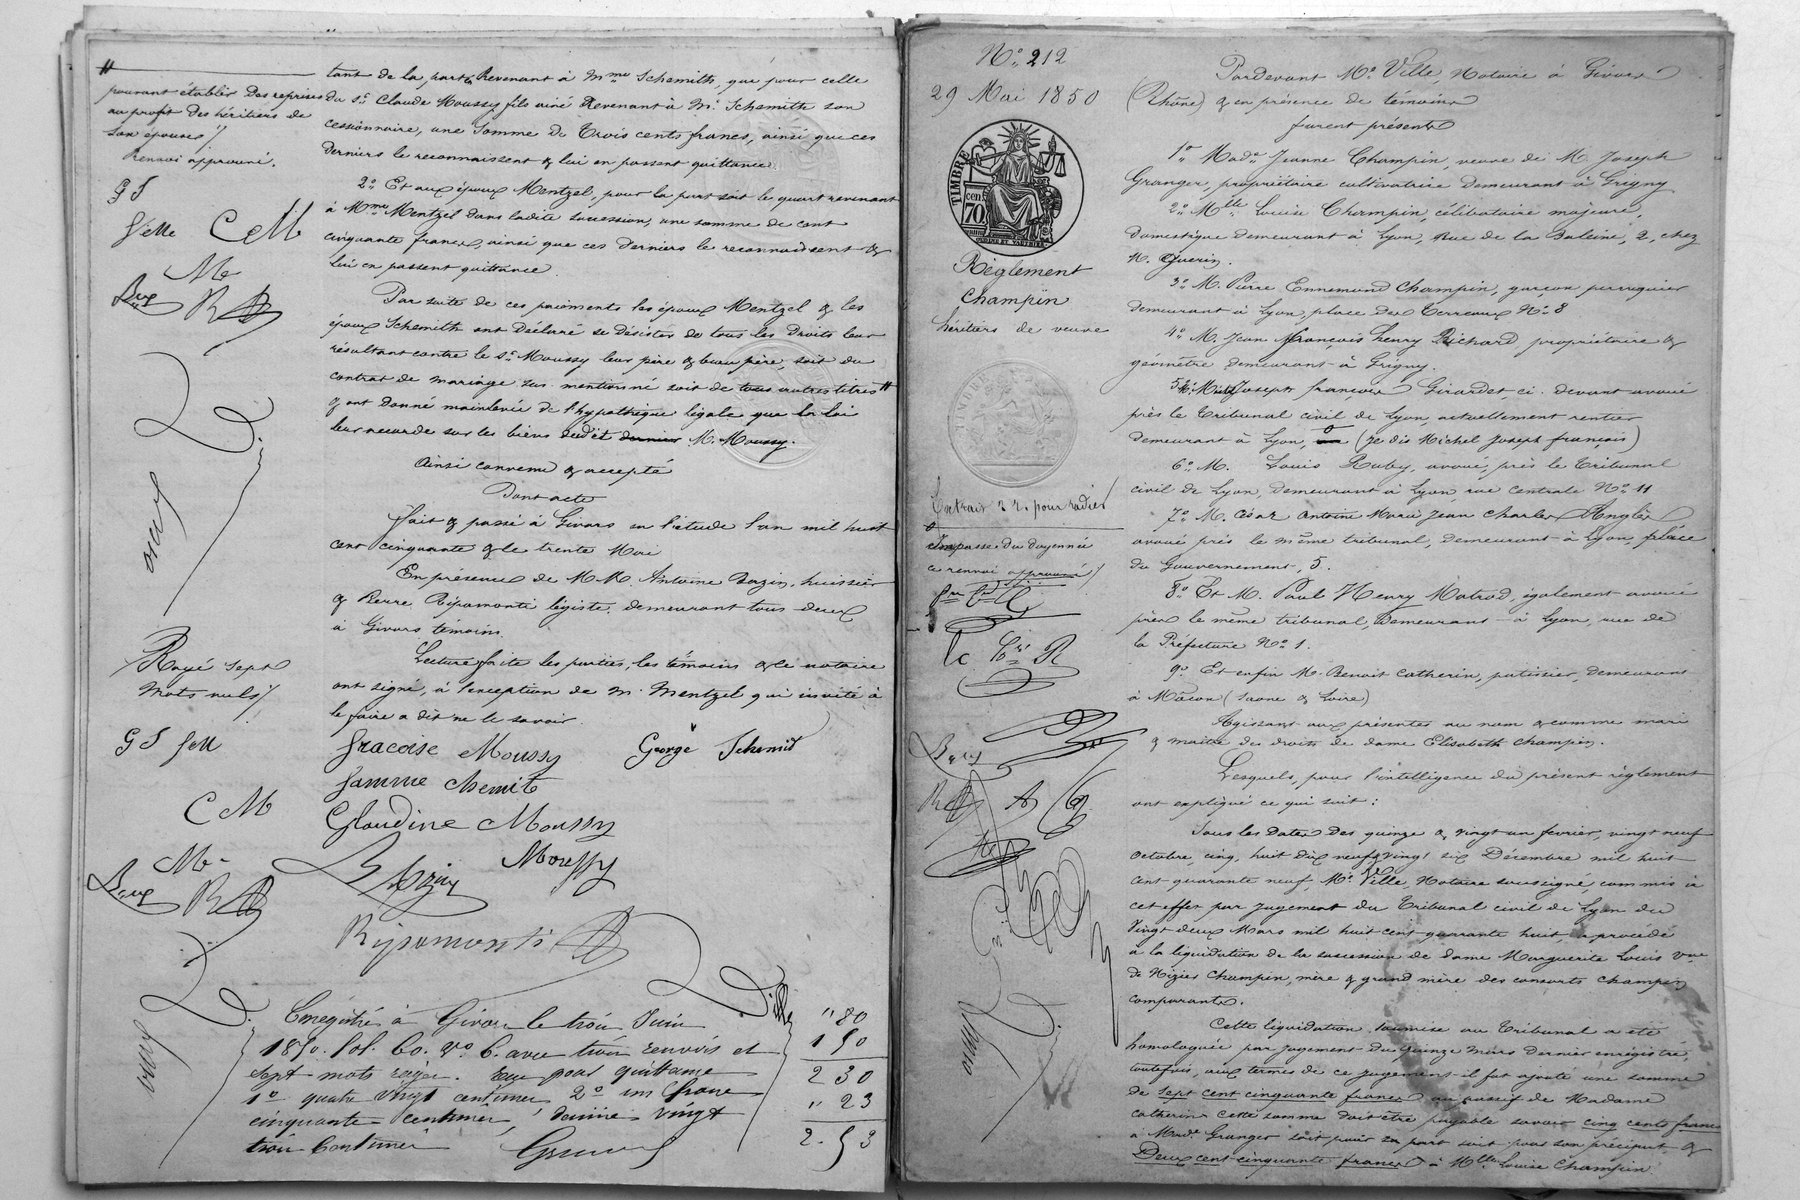 pouvant établir des reprises
au profit des héritiers de
son épouse /
Renvoi approuvé.
G S
f elle C M
M
R
tant de la part Revenant à Mme Schemith, que pour celle
du sr. Claude Moussy fils ainé Revenant à Mr. Schemith son
cessionnaire, une somme de Trois cents francs, ainsi que ces
derniers le reconnaissent & lui en passent quittance.
2o. Et aux époux Mentzel, pour la part soit le quart revenant
à Mme Mentzel dans ladite succession, une somme de cent
cinquante francs, ainsi que ces derniers le reconnaissent &
lui en passent quittance.
Par suite de ces paiements les époux Mentzel & les
époux Schemith ont déclaré se désister de tous les droits leur
résultant contre le sr. Moussy leur père & beau père, soit du
contrat de mariage sus-mentionné soit de tous autres titres
& ont donné mainlevée de l'hypothèque légale que la loi
leur accorde sur les biens dudit dernier M. Moussy.
Ainsi convenu & accepté
Dont acte
Fait & passé à Givors en l'étude l'an mil huit
cent cinquante & le trente Mai
En présence de M.M. Antoine Bazin, huissier
& Pierre Ripamonti légiste, demeurant tous deux
à Givors témoins.
Lecture faite les parties, les témoins & le notaire
ont signé, à l'exception de M. Mentzel qui invité à
le faire a dit ne le savoir.
Rayé sept
mots nuls /
G S f M
C M
M
R
fracoise Moussy George Schemit
famme chemit
Glaudine Moussy
Moussy
Bazin
Ripamonti
Ville
Enregistré à Givors le trois Juin
1850. fol. 60. Vo. 6. avec trois renvois et
sept mots rayés. Reçu pour quittance
1o quatre vingt centimes 2o un franc
cinquante centimes, décime vingt
trois centimes
" 80
1 50
2 30
" 23
2. 53
No. 212
29 Mai 1850
TIMBRE
70 cen
Règlement
Champin
héritiers de veuve
Extrait 3 r. pour radier
impasse du doyenné
ce renvoi approuvé /
R
Pardevant Me. Ville, Notaire à Givors
(Rhône) & en présence de témoins
furent présents
1o. Made. Jeanne Champin, veuve de M. Joseph
Granger, propriétaire cultivatrice demeurant à Grigny
2o. Mlle. Louise Champin, célibataire majeure,
domestique demeurant à Lyon, Rue de la Baleine, 2, chez
M. Guerin.
3o. M. Pierre Ennemond Champin, garçon perruquier
demeurant à Lyon, place des Terreaux No. 8
4o. M. Jean françois henry Richard propriétaire &
géomètre demeurant à Grigny.
5o. M. Joseph françois Girardet, ci-devant avoué
près le Tribunal civil de Lyon, actuellement rentier
demeurant à Lyon, (je dis Michel Joseph francois)
6o. M. Louis Ruby, avoué, près le Tribunal
civil de Lyon, demeurant à Lyon, rue centrale No. 11
7o. M. César Antoine Marie Jean Charles Anglès
avoué près le même tribunal, demeurant à Lyon, place
du Gouvernement, 5.
8o. Et M. Paul Henry Matrod, également avoué
près le même tribunal, demeurant à Lyon, rue de
la Préfecture No. 1.
9o. Et enfin M. Benoit Catherin, patissier, demeurant
à Mâcon (Saone & Loire)
Agissant aux présentes au nom & comme mari
& maitre des droits de dame Elisabeth Champin.
Lesquels, pour l'intelligence du présent règlement
ont expliqué ce qui suit :
Sous les dates des quinze & vingt un fevrier, vingt neuf
octobre, cinq, huit dix neuf & vingt six Décembre mil huit
cent quarante neuf, Me. Ville, Notaire soussigné, commis à
cet effet par jugement du Tribunal civil de Lyon du
Vingt deux Mars mil huit cent quarante huit, a procédé
à la liquidation de la succession de dame Marguerite Louis vve
de Nizier Champin, mère & grand mère des consorts Champin
comparants.
Cette liquidation, soumise au Tribunal a été
homologuée par jugement du quinze mars dernier enregistré,
toutefois, aux termes de ce jugement il fut ajouté une somme
de sept cent cinquante francs au passif de Madame
Catherin cette somme doit être payable savoir cinq cents francs
à Made. Granger soit pour sa part soit pour son préciput &
Deux cent cinquante francs à Mlle Louise Champin